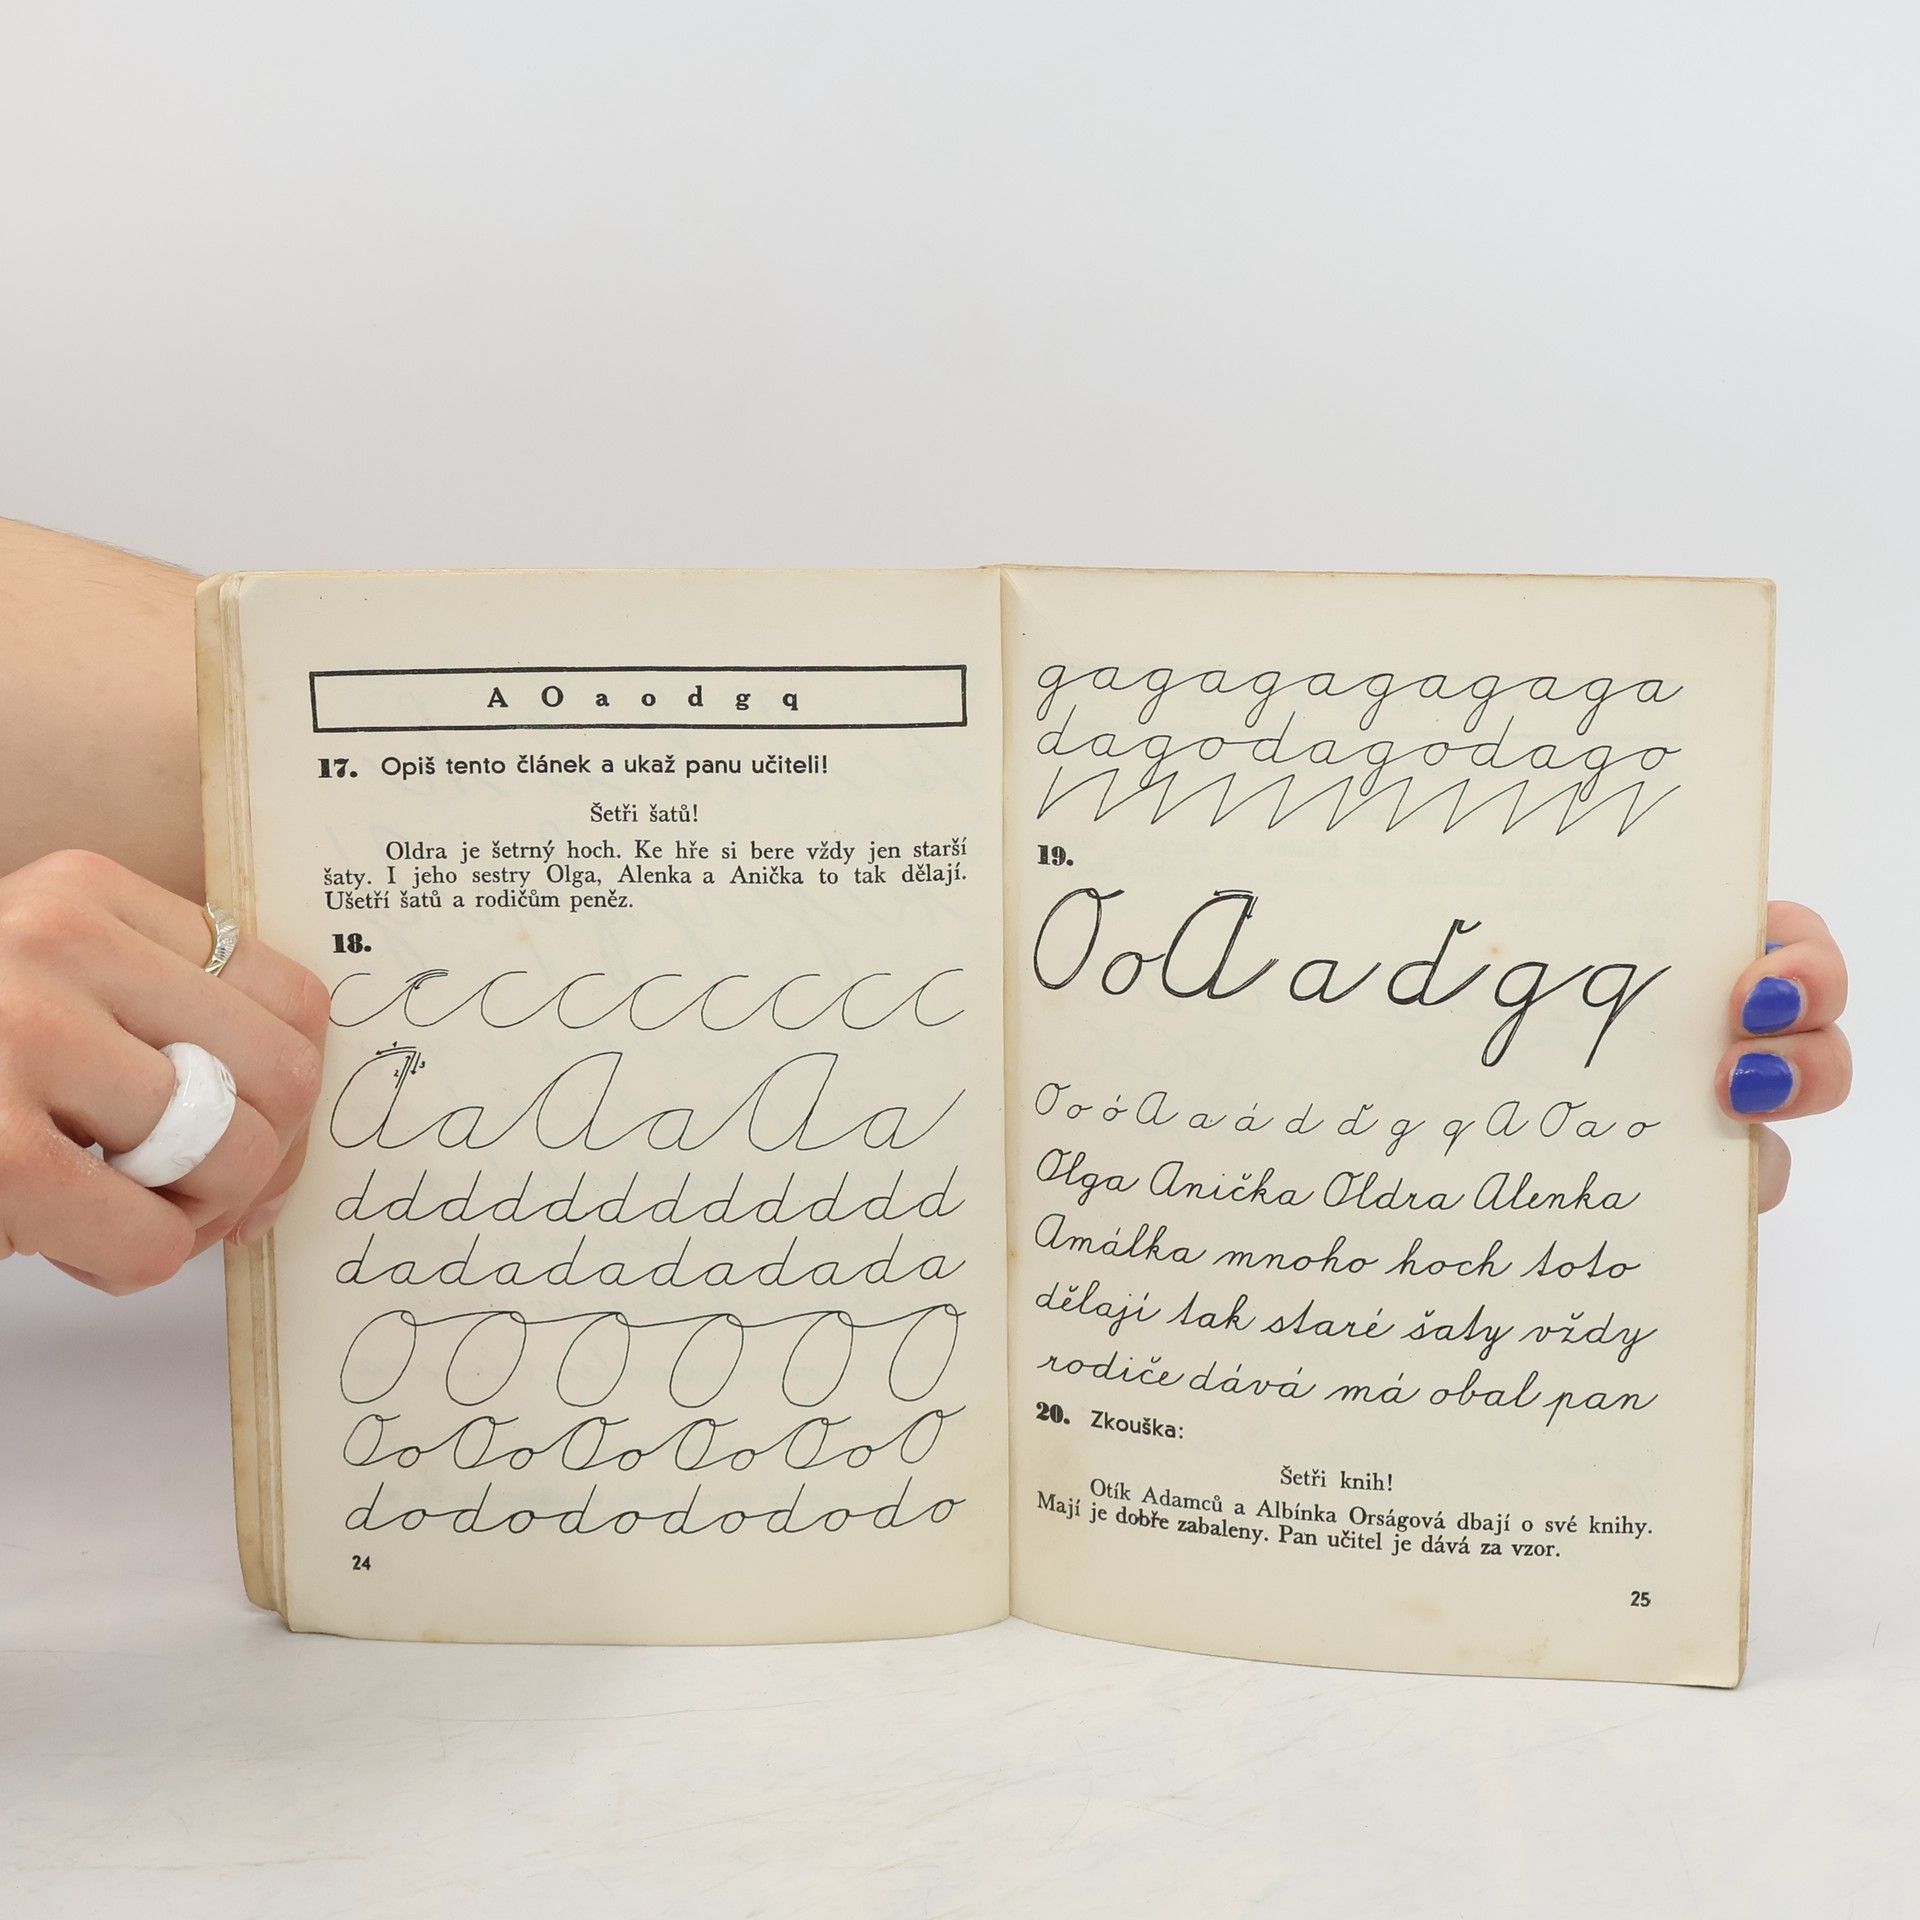 A O a o d g q
17. Opiš tento článek a ukaž panu učiteli!
Šetři šatů!
Oldra je šetrný hoch. Ke hře si bere vždy jen starší
šaty. I jeho sestry Olga, Alenka a Anička to tak dělají.
Ušetří šatů a rodičům peněz.
18.
c c c c c c c c c
1 2 3
A a A a A a
d d d d d d d d d d d d
dadadadadada
O O O O O O
O o O o O o O o O o O
dododododododo
24
gagagagagaga
dagodagodago
19.
O o A a ď g q
O o ó A a á d ď g q A O a o
Olga Anička Oldra Alenka
Amálka mnoho hoch toto
dělají tak staré šaty vždy
rodiče dává má obal pan
20. Zkouška:
Šetři knih!
Otík Adamců a Albínka Orságová dbají o své knihy.
Mají je dobře zabaleny. Pan učitel je dává za vzor.
25